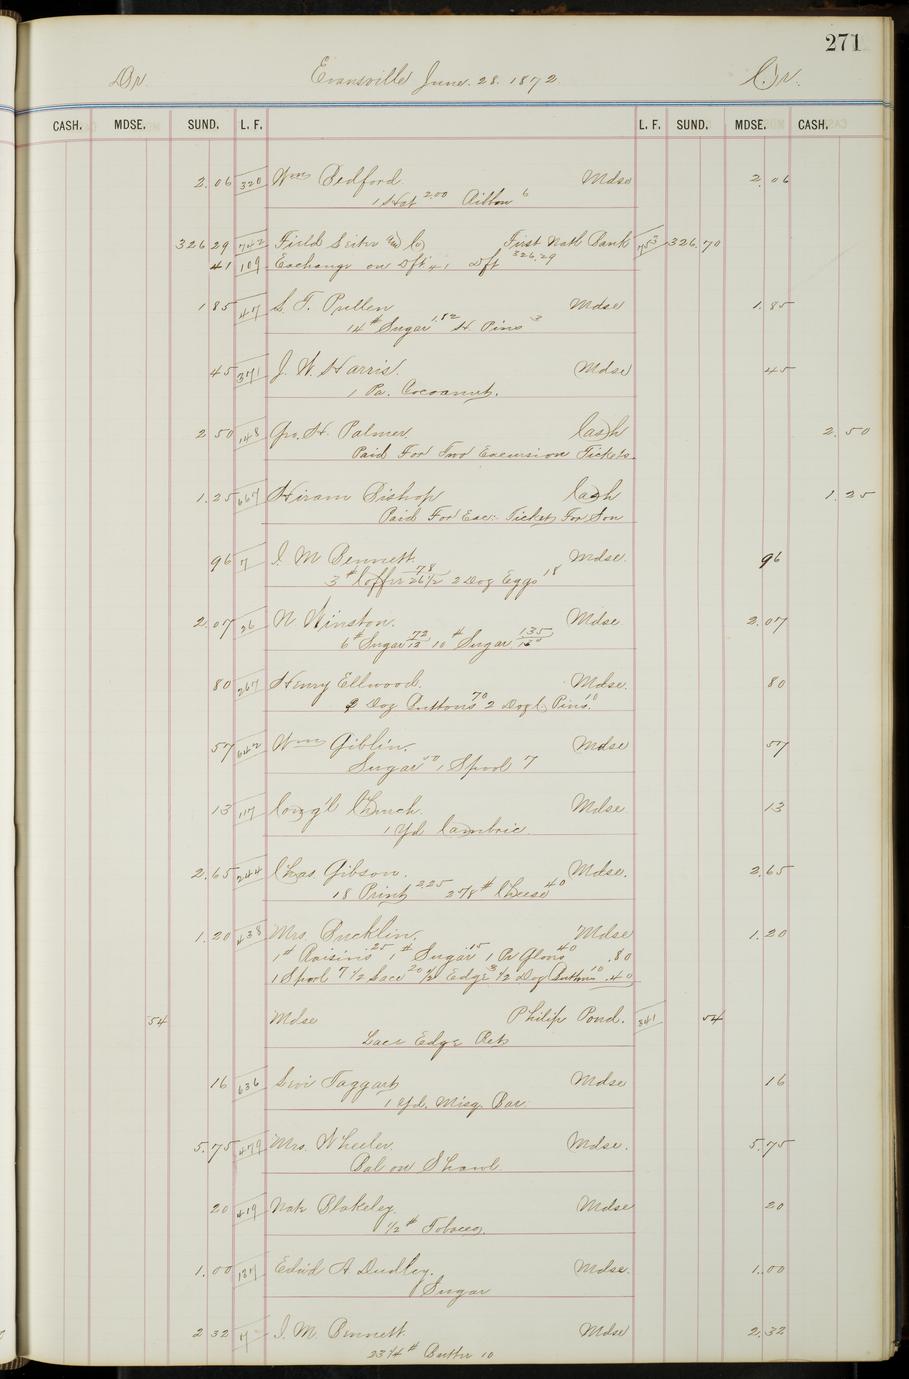 271
Dr. Evansville June. 28. 1872 Cr.
CASH. MDSE. SUND. L. F. L. F. SUND. MDSE. CASH.
2.06 320 Wm Bedford. Mdse 2.06
1 Hat 2.00 Ribbon 6
326 29 742 Field Leiter & Co First Natl Bank 753 326.70
41 109 Exchange on Dft 41 Dft 326.29
1 85 47 S. T. Pullen Mdse 1.85
14 # Sugar 1.82 H. Pins 3
45 371 J. W. Harris. Mdse 45
1 Pa. Cocoanut.
2 50 148 Geo. H. Palmer Cash 2.50
Paid For Two Excursion Tickets
1.25 667 Hiram Bishop Cash 1.25
Paid For Exc. Ticket For Son
96 7 I. M Bennett Mdse. 96
3 # Coffee 26 1/2 78 2 Doz Eggs 18
2.07 26 N. Winston. Mdse 2.07
6 # Sugar 12 72 10 # Sugar 1.35
80 267 Henry Ellwood. Mdse. 80
Doz Buttons 70 2 Doz C. Pins 10
57 642 Wm Giblin. Mdse 57
Sugar 50 1 Spool 7
13 117 Cong'l Church. Mdse. 13
1 Yd Cambric
2.65 244 Chas. Gibson. Mdse. 2.65
18 Print 2.25 2 7/8 # Cheese 40
1.20 438 Mrs. Bucklin. Mdse 1.20
1 # Raisins 25 1 # Sugar 15 1 Pr Gloves 40 .80
1 Spool 7 1/2 Lace 20 1/2 Edge 3 1/2 Doz Buttons 10 .40
54 Mdse Philip Pond. 341 54
Lace Edge Ret
16 636 Levi Taggart Mdse 16
1 Yd. Misq. Bar.
5.75 479 Mrs. Wheeler. Mdse. 5.75
Bal on Shawl
20 419 Nat Blakeley. Mdse 20
1/2 # Tobacco.
1.00 137 Edwd A Dudley. Mdse. 1.00
Sugar
2 32 7 I. M. Bennett Mdse 2.32
23 1/4 # Butter 10